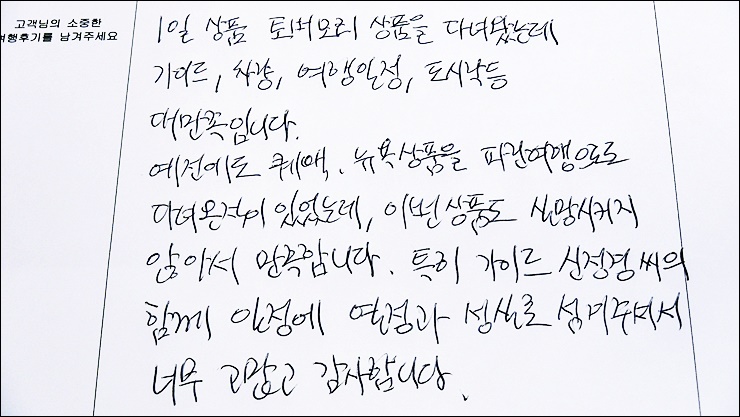 고객님의 소중한
여행후기를 남겨주세요
1일 상품 토버모리 상품을 다녀왔는데
가이드, 차량, 여행일정, 도시락등
대만족입니다.
예전에도 퀘백, 뉴욕상품을 패키지여행으로
다녀온적이 있었는데, 이번상품도 실망시키지
않아서 만족합니다. 특히 가이드 신정경씨의
함께 일정에 열정과 성실로 섬겨주셔서
너무 고맙고 감사합니다.